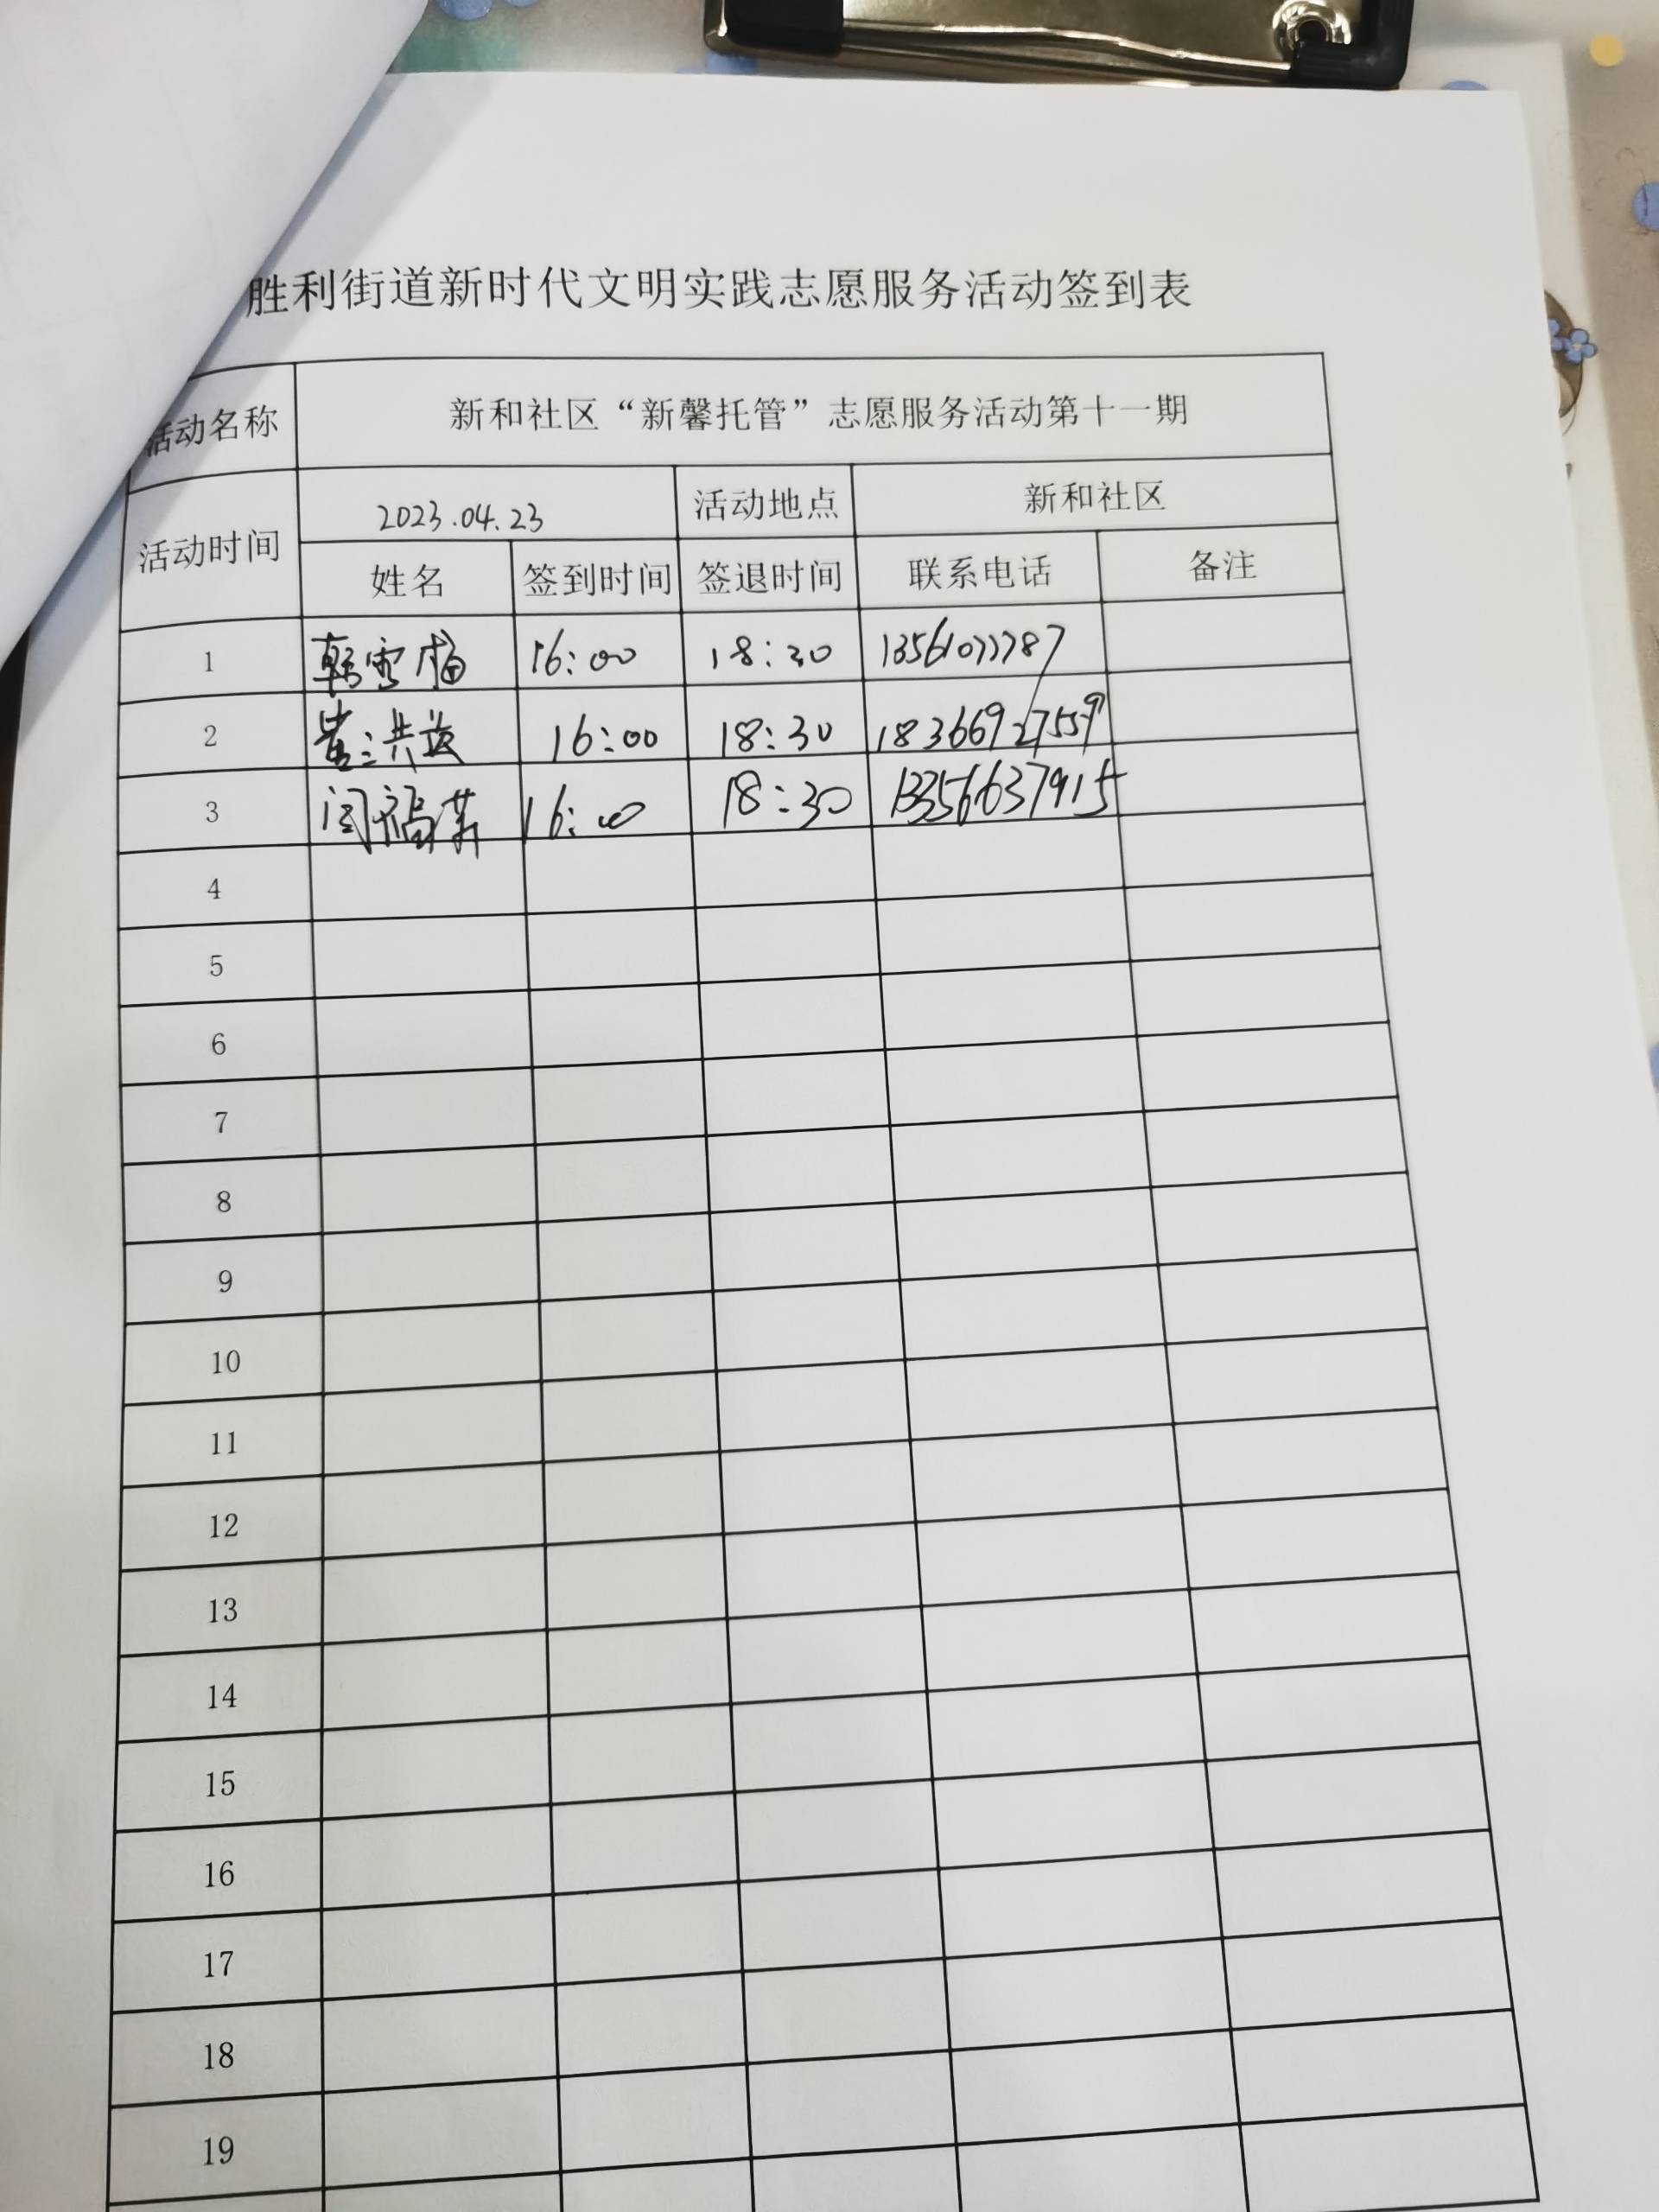 胜利街道新时代文明实践志愿服务活动签到表
活动名称 新和社区“新馨托管”志愿服务活动第十一期
活动时间 2023.04.23 活动地点 新和社区
姓名 签到时间 签退时间 联系电话 备注
1 韩雪梅 16:00 18:30 13561077787
2 16:00 18:30 18366927559
3 闫福英 16:00 18:30 13356637915
4
5
6
7
8
9
10
11
12
13
14
15
16
17
18
19